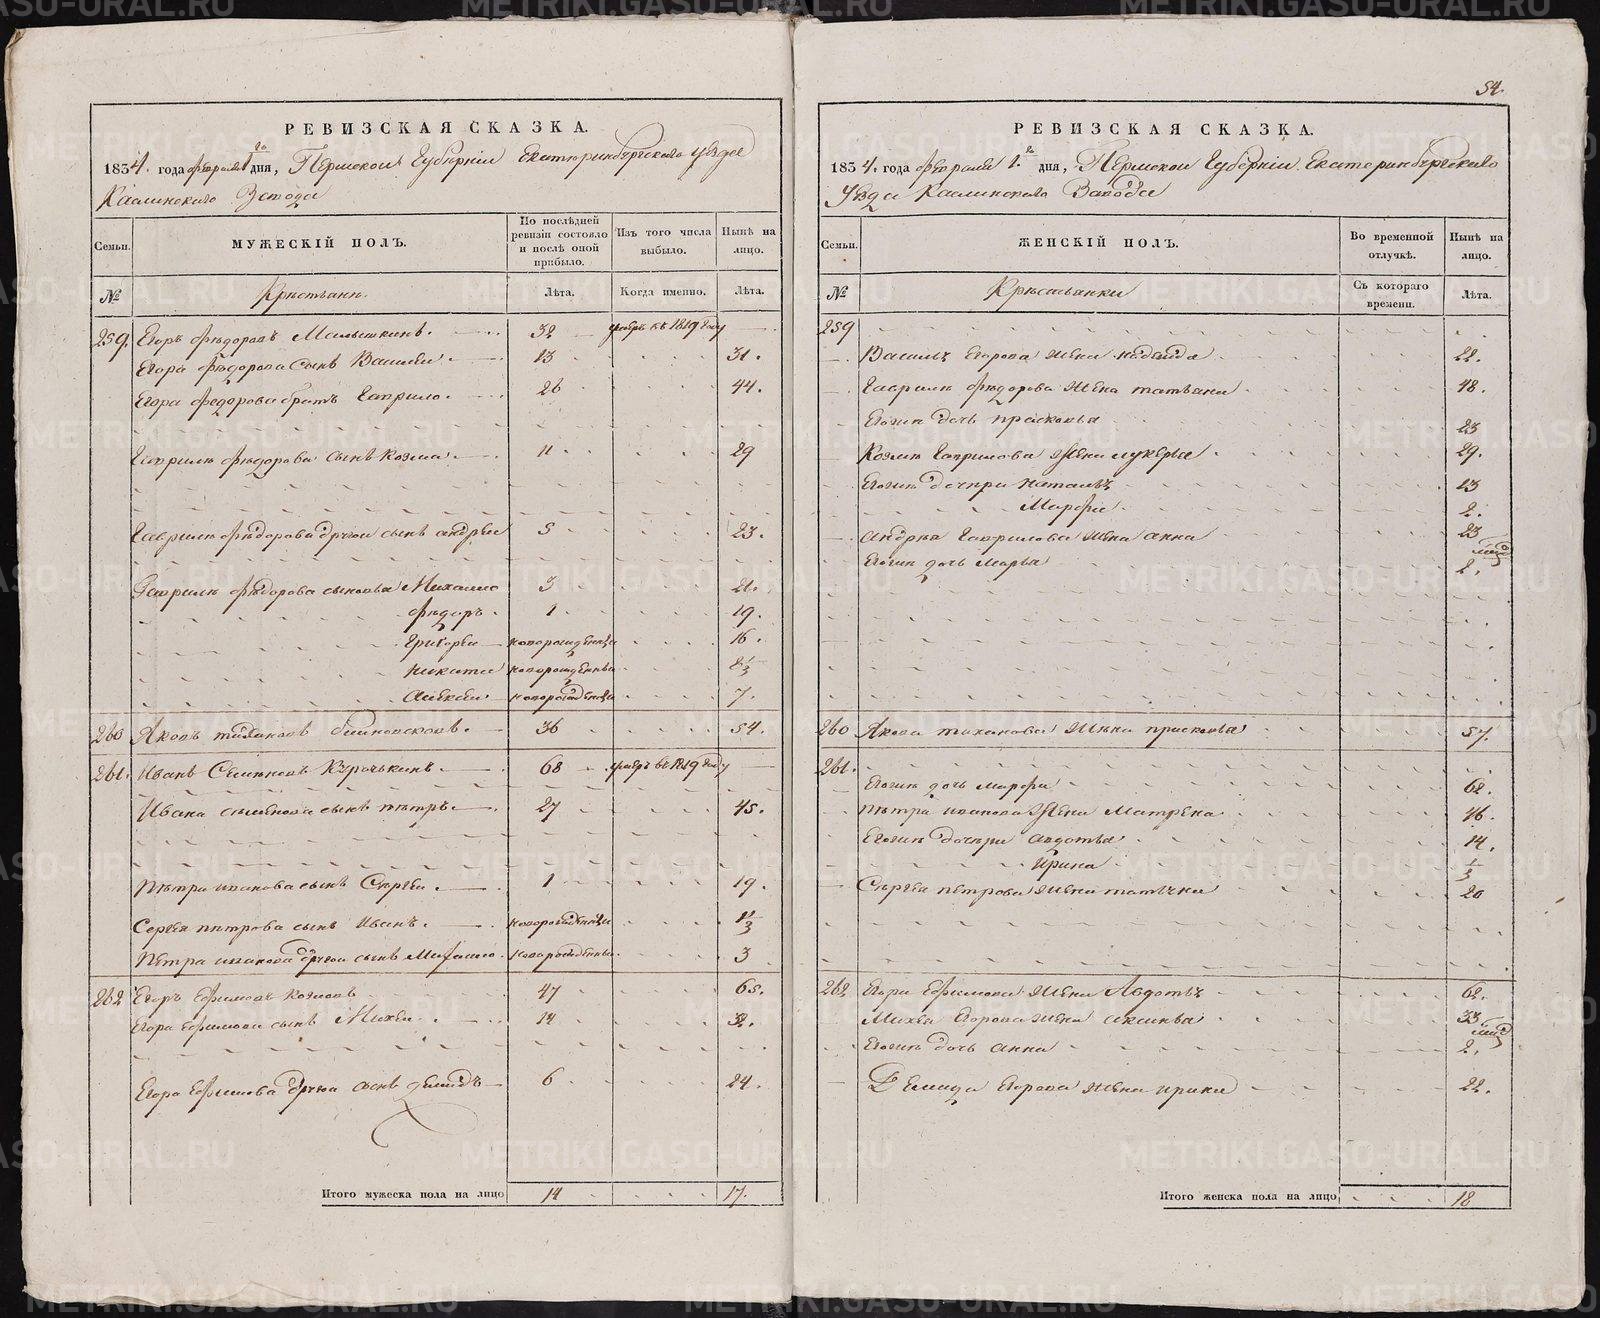 РЕВИЗСКАЯ СКАЗКА.
1834. года февраля 1го дня, Пермской Губернiи Екатеринбургскаго уѣзда
Каслинскаго Завода
Семьи.
МУЖЕСКІЙ ПОЛЪ.
По послѣдней ревизіи состояло и послѣ оной прибыло.
Изъ того числа выбыло.
Нынѣ на лицо.
№
Крестьяне.
Лѣта.
Когда именно.
Лѣта.
259. Егоръ Федоровъ Малышкинъ. 32 умеръ въ 1819 году
Егора Федорова сынъ Василей. 13 31.
Егора Федорова братъ Гаврило. 26 44.
Гаврилы Федорова сынъ Козма. 11 29
Гаврилы Федорова другой сынъ Андрей 5 23.
Гаврилы Федорова сыновья Михайло 3 21.
Федоръ. 1 19.
Григорей новорожденный 16.
Никита новорожденный
Алексей новорожденный 7.
260 Яковъ Тихановъ 36 54.
261. Иванъ Семеновъ Курочькинъ. 68 умеръ въ 1819 году
Ивана Семенова сынъ Петръ. 27 45.
Петра Иванова сынъ Сергей. 1 19.
Сергея Петрова сынъ Иванъ. новорожденный
Петра Иванова другой сынъ Михайло. новорожденный. 3
262 Егоръ Ефимовъ Козловъ 47 65.
Егора Ефимова сынъ Михей. 14 32.
Егора Ефимова другой сынъ Демидъ 6 24.
Итого мужеска пола на лицо 14 17.
54.
РЕВИЗСКАЯ СКАЗКА.
1834. года февраля 1.го дня, Пермской Губернiи Екатеринбургскаго
Уѣзда Каслинскаго Завода
Семьи.
ЖЕНСКІЙ ПОЛЪ.
Во временной отлучкѣ.
Нынѣ на лицо.
№
Крестьянки
Съ котораго времени.
Лѣта.
259
Василья Егорова жена Надежда 22.
Гаврилы Федорова жена Татьяна 48.
Егожъ дочь Прасковья 23
Козмы Гаврилова жена Лукерья 29.
Егожъ дочери Наталья 13
Марфа 2.
Андрея Гаврилова жена Анна 23
Егожъ дочь Марья 2. мѣся
260 Якова Тиханова жена Прасковья 57.
261.
Егожъ дочь Марфа 62.
Петра Иванова жена Матрена 46.
Егожъ дочери Авдотья 14.
Ирина 1/3
Сергея Петрова жена Татьяна 20
262 Егора Ефимова жена Авдотья 62.
Михея Егорова жена Аксинья 33
Егожъ дочь Анна 2. мѣся
Демида Егорова жена Ирина 22.
Итого женска пола на лицо 18
METRIKI.GASO-URAL.RU